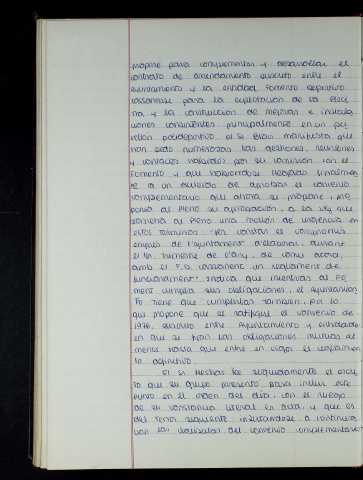 propone para complementar y desarrollar el
contrato de arrendamiento suscrito entre el
ayuntamiento y la entidad Fomento deportivo
cassanense para la explotación de la pisci
na y la construcción de mejoras e instala
ciones consistentes principalmente en un pa
bellón polideportivo. El Sr. manifiesta que
han sido numerosas las gestiones, reuniones
y contactos habidos por su comisión con el
Fomento y que habiéndose llegado finalmen
te a un acuerdo de aprobar el convenio
complementario que ahora se propone, pro
ponía al Pleno su aprobación, a la vez que
sometía al Pleno una moción de urgencia en
estos términos: "Fer constar el compromís
emprès de l'ajuntament d'elaborar, durant
el 1er trimestre de l'any, de comú acord,
amb el F.D. cassanenc un reglament de
funcionament". Indica que mientras el Fo
ment cumplía sus obligaciones, el ayuntamien
to tiene que cumplirlas también, por lo
que propone que se ratifique el convenio de
1976, suscrito entre Ayuntamiento y entidad
en que se fijan las obligaciones mutuas al
menos hasta que entre en vigor el reglamen
to definitivo.
El Sr. lee seguidamente el escri
to que su grupo presentó para incluir este
punto en el orden del día, con el ruego
de su constancia literal en acta, y que es
del tenor siguiente, insertándose a continua
con las cláusulas del convenio complementario